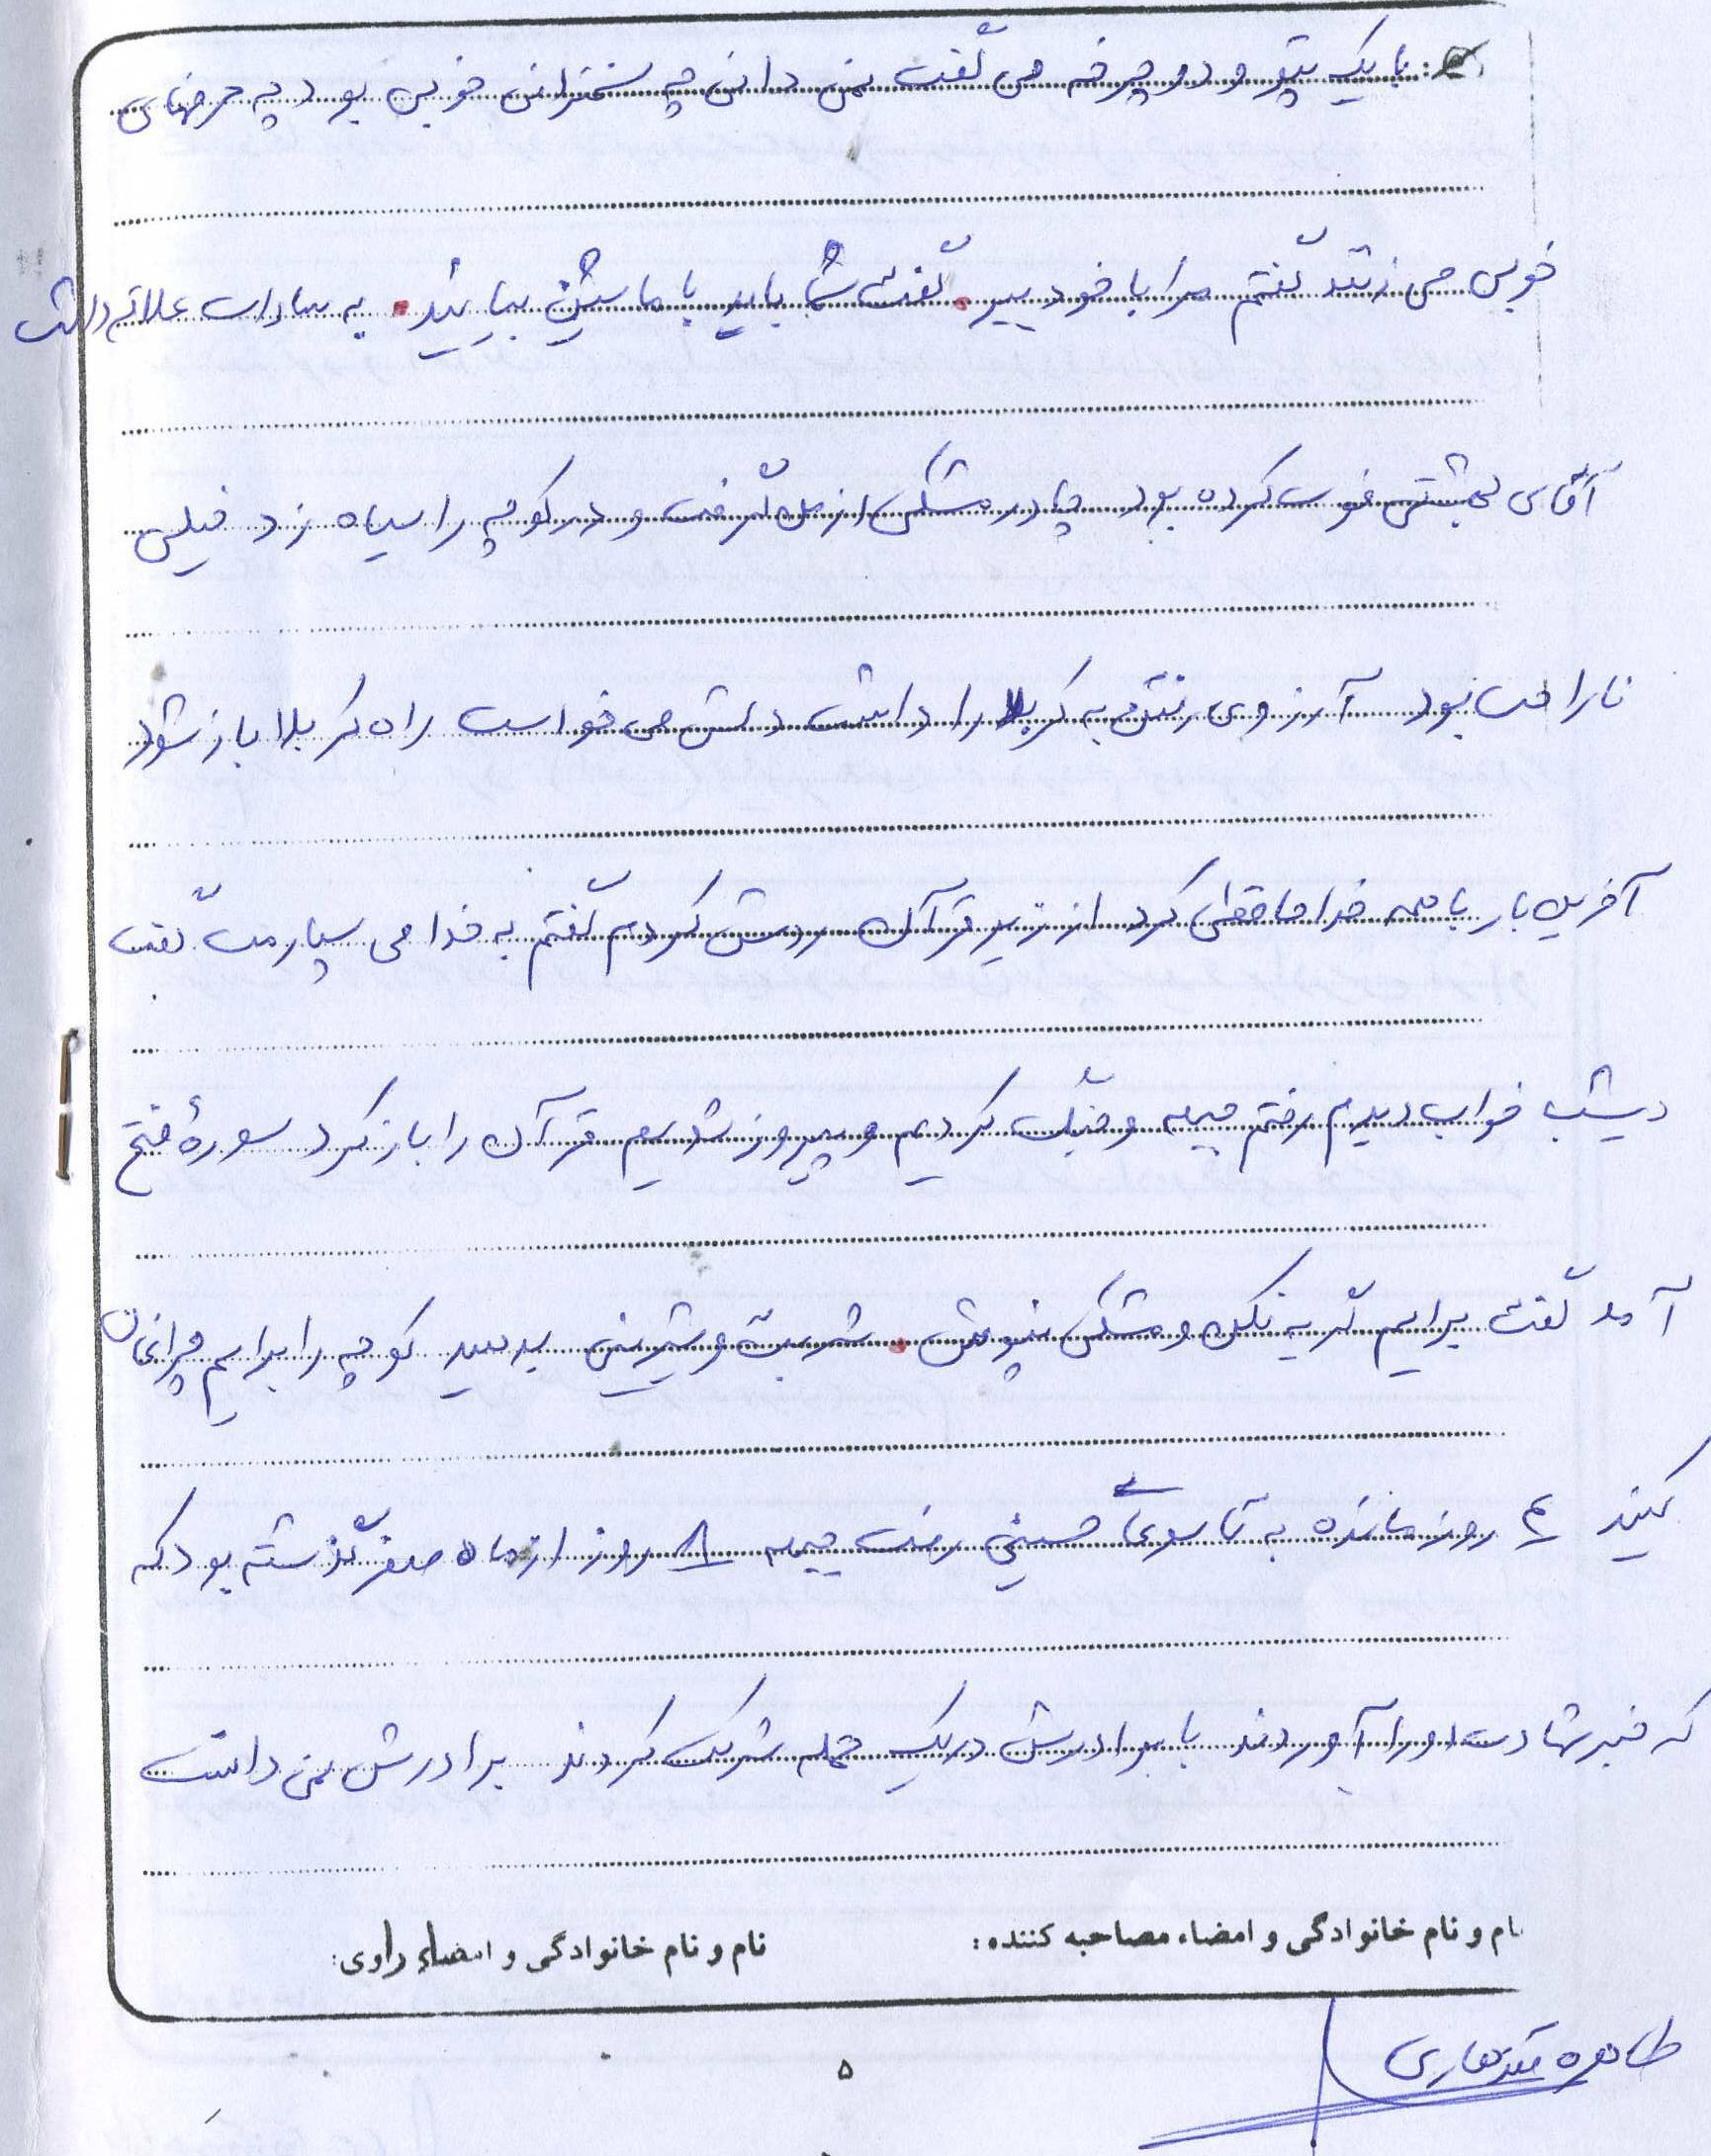 با یک پتو و دوچرخه می گفت نمی دانی چه سخنرانی خوبی بود چه حرفهای
خوبی می زنند گفتم مرا با خود ببر. گفت شما باید با ماشین بیایید. به سادات علاقه داشت
آقای بهشتی فوت کرده بود چادر مشکی از من گرفت و در کوچه را سیاه زد خیلی
ناراحت بود آرزوی رفتن به کربلا را داشت دلش می خواست راه کربلا باز شود
آخرین بار با همه خداحافظی کرد از زیر قرآن ردش کردم گفتم به خدا می سپارمت گفت
دیشب خواب دیدم رفتم جبهه و جنگ کردیم و پیروز شدیم قرآن را باز کرد سورهٔ فتح
آمد گفت برایم گریه نکن و مشکی نپوش. شربت و شیرینی بدهید کوچه را برایم چراغان
کنید ۴ روز مانده به تاسوعای حسینی رفت جبهه ۸ روز از ماه صفر گذشته بود که
که خبر شهادت او را آوردند با برادرش در یک حمله شرکت کردند برادرش نمی دانست
نام و نام خانوادگی و امضاء مصاحبه کننده:
نام و نام خانوادگی و امضاء راوی:
طاهره قندهاری
۵